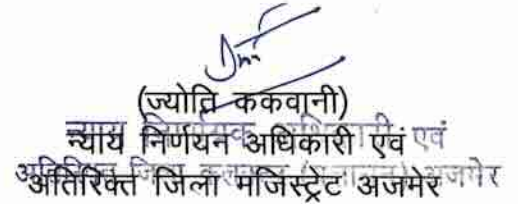 (ज्योति ककवानी)
न्याय निर्णयन अधिकारी एवं
अतिरिक्त जिला मजिस्ट्रेट अजमेर